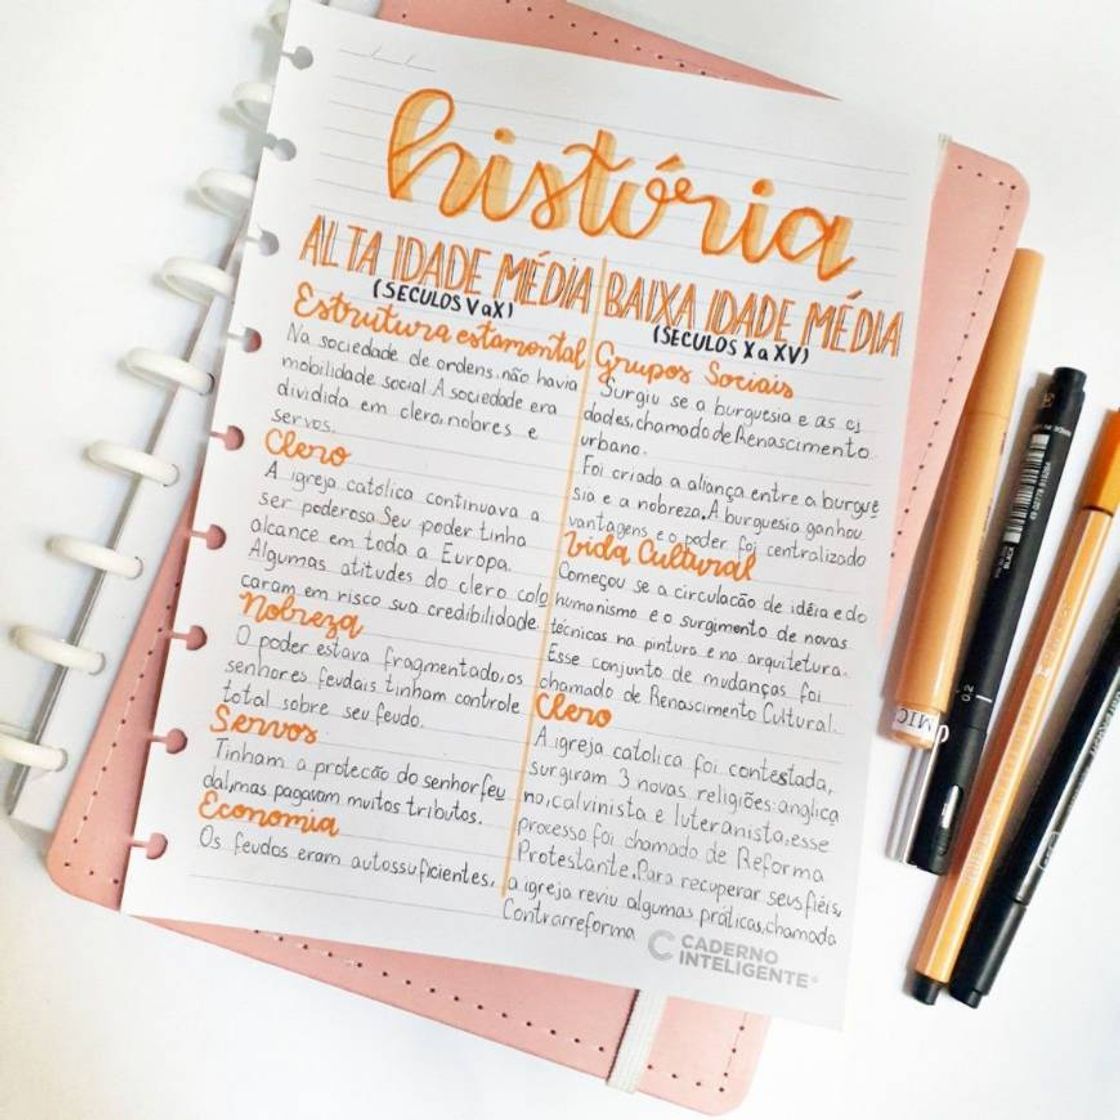 história
ALTA IDADE MÉDIA
(SECULOS V a X)
Estrutura estamental
Na sociedade de ordens, não havia
mobilidade social. A sociedade era
dividida em clero, nobres e
servos.
Clero
A igreja católica continuava a
ser poderosa. Seu poder tinha
alcance em toda a Europa.
Algumas atitudes do clero colo
caram em risco sua credibilidade.
Nobreza
O poder estava fragmentado, os
senhores feudais tinham controle
total sobre seu feudo.
Servos
Tinham a protecão do senhor feu
dal, mas pagavam muitos tributos.
Economia
Os feudos eram autossuficientes,
BAIXA IDADE MÉDIA
(SECULOS X a XV)
Grupos Sociais
Surgiu se a burguesia e as ci
dades, chamado de Renascimento
urbano.
Foi criada a aliança entre a burgue
sia e a nobreza. A burguesia ganhou
vantagens e o poder foi centralizado
Vida Cultural
Começou se a circulacão de idéia e do
humanismo e o surgimento de novas
técnicas na pintura e na arquitetura.
Esse conjunto de mudanças foi
chamado de Renascimento Cultural.
Clero
A igreja catolica foi contestada,
surgiram 3 novas religiões: anglica
no, calvinista e luteranista, esse
processo foi chamado de Reforma
Protestante. Para recuperar seus fiéis,
a igreja reviu algumas práticas, chamada
Contrarreforma
CADERNO
INTELIGENTE
0.2
BLACK